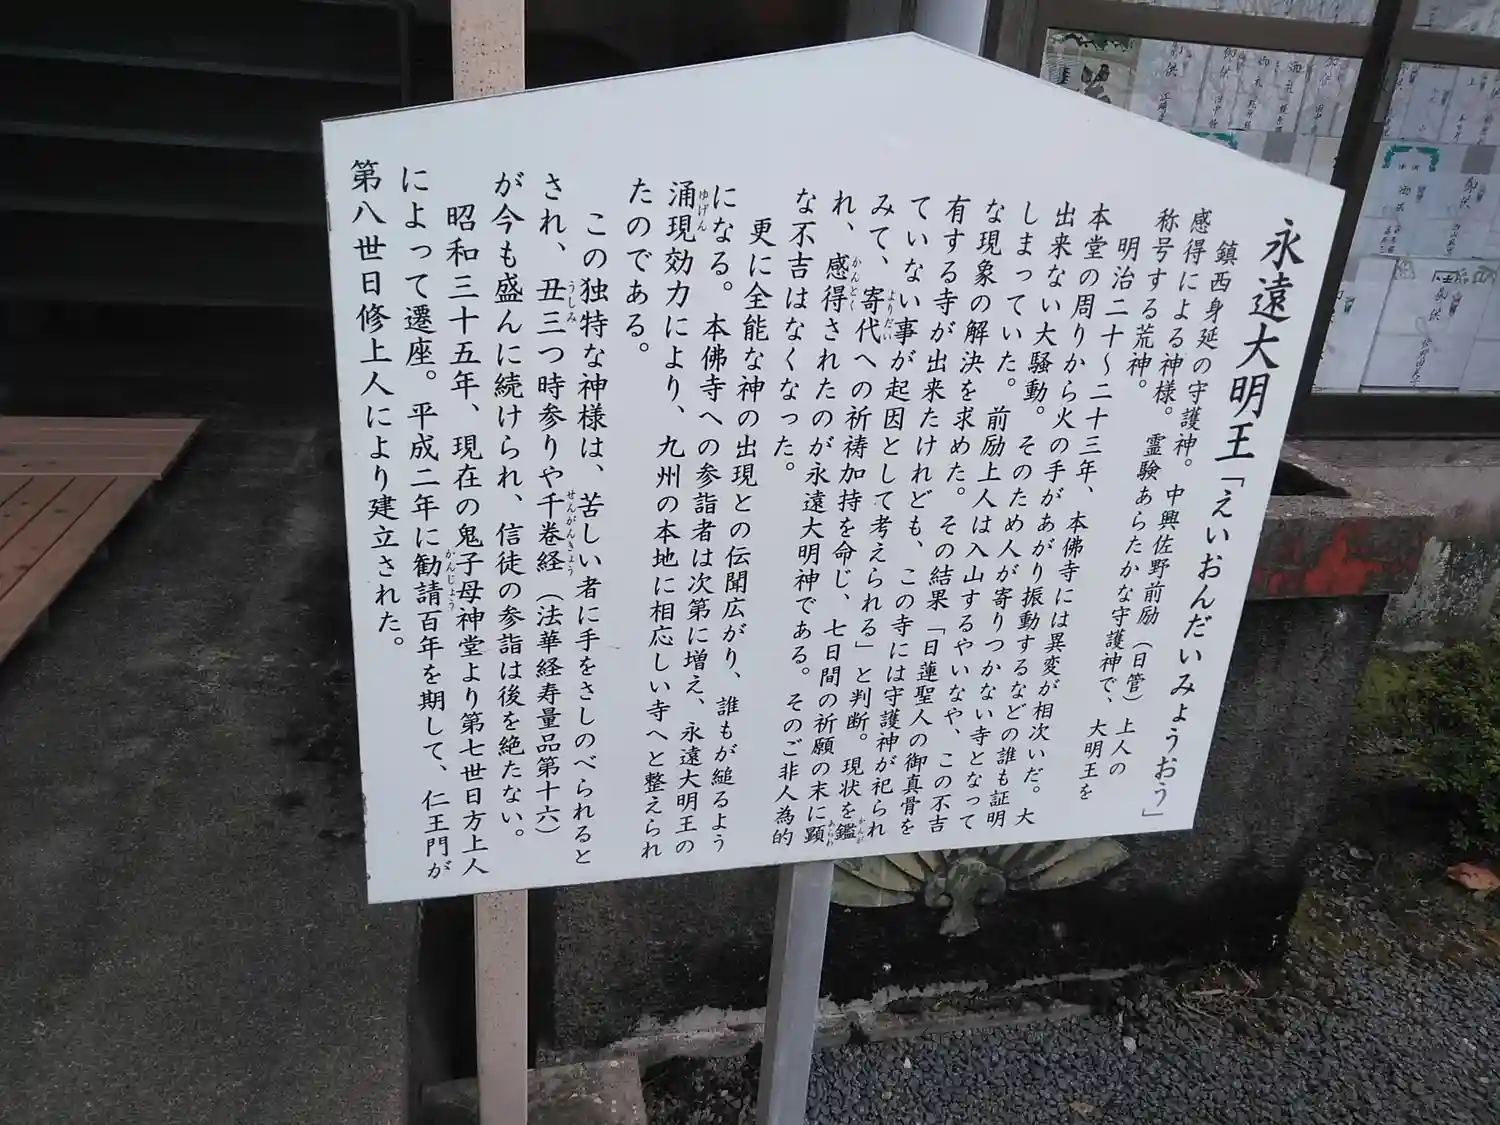 永遠大明王「えいおんだいみょうおう」
鎮西身延の守護神。中興佐野前励（日管）上人の
感得による神様。霊験あらたかな守護神で、大明王を
称号する荒神。
明治二十～二十三年、本佛寺には異変が相次いだ。大
本堂の周りから火の手があがり振動するなどの誰も証明
出来ない大騒動。そのため人が寄りつかない寺となって
しまっていた。前励上人は入山するやいなや、この不吉
な現象の解決を求めた。その結果「日蓮聖人の御真骨を
有する寺が出来たけれども、この寺には守護神が祀られ
ていない事が起因として考えられる」と判断。現状を鑑
みて、寄代への祈祷加持を命じ、七日間の祈願の末に顕
れ、感得されたのが永遠大明神である。そのご非人為的
な不吉はなくなった。
更に全能な神の出現との伝聞広がり、誰もが縋るよう
になる。本佛寺への参詣者は次第に増え、永遠大明王の
涌現効力により、九州の本地に相応しい寺へと整えられ
たのである。
この独特な神様は、苦しい者に手をさしのべられると
され、丑三つ時参りや千巻経（法華経寿量品第十六）
が今も盛んに続けられ、信徒の参詣は後を絶たない。
昭和三十五年、現在の鬼子母神堂より第七世日方上人
によって遷座。平成二年に勧請百年を期して、仁王門が
第八世日修上人により建立された。